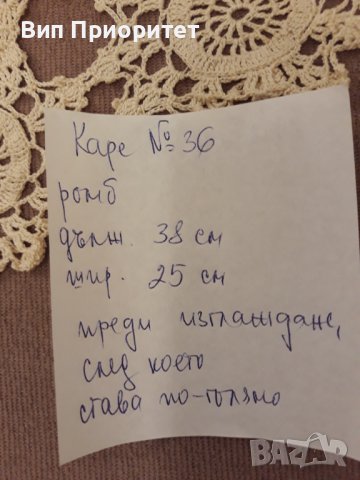 Вип Приоритет
Каре № 36
ромб
дълж. 38 см
шир. 25 см
преди изглаждане,
след което
става по-голямо
BAZAR